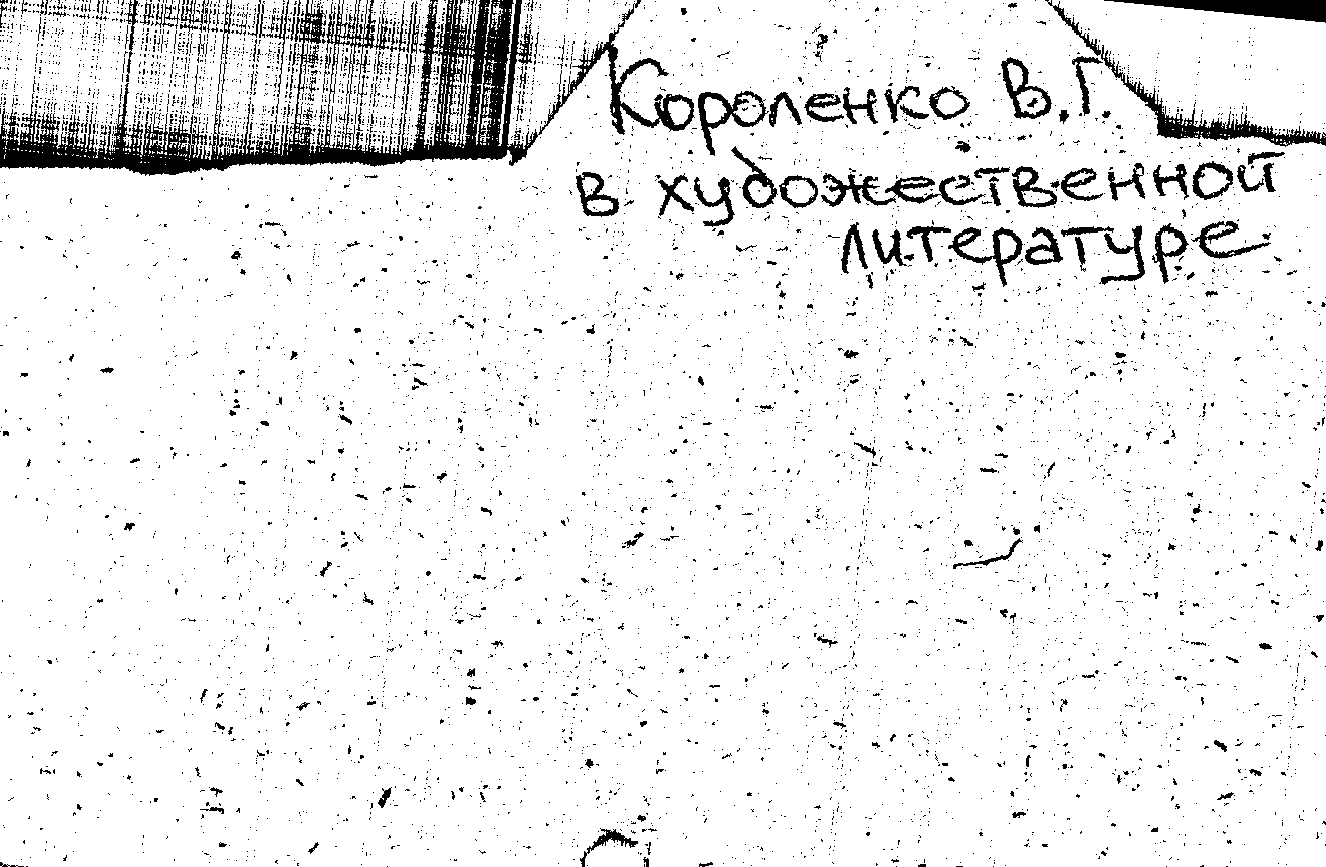 Короленко В.Г.
в художественной
литературе